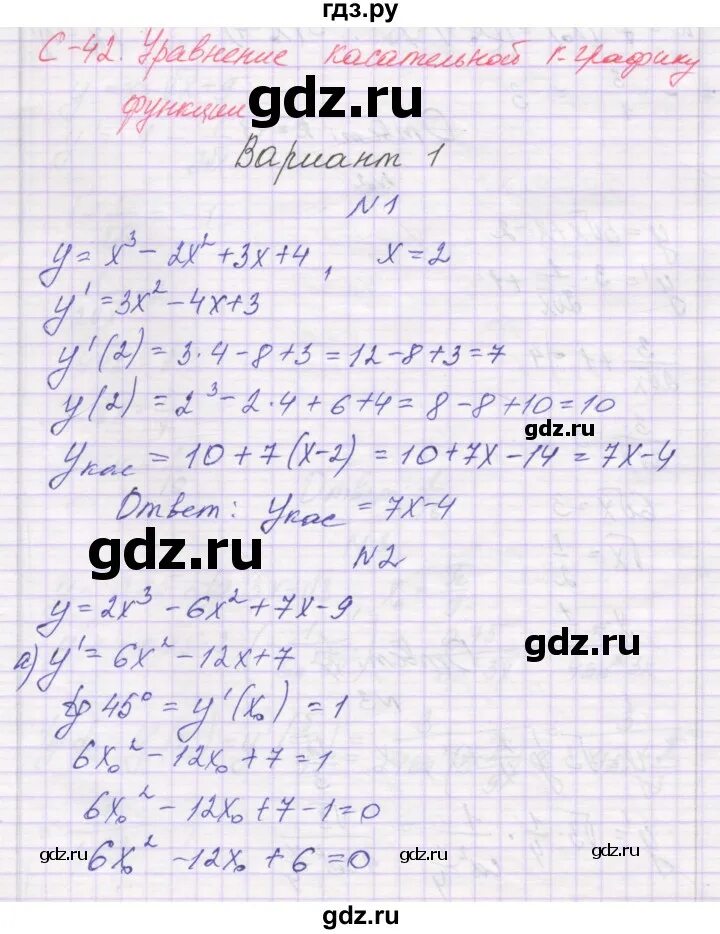 гдз.ру
С-42. Уравнение касательной к графику
функции
gdz.ru
Вариант 1
N1
y = x³ - 2x² + 3x + 4, x = 2
y' = 3x² - 4x + 3
y'(2) = 3·4 - 8 + 3 = 12 - 8 + 3 = 7
y(2) = 2³ - 2·4 + 6 + 4 = 8 - 8 + 10 = 10
gdz.ru
Yкас = 10 + 7(x-2) = 10 + 7x - 14 = 7x - 4
Ответ: Yкас = 7x - 4
gdz.ru
N2
y = 2x³ - 6x² + 7x - 9
gdz.ru
а) y' = 6x² - 12x + 7
tg 45° = y'(x₀) = 1
6x₀² - 12x₀ + 7 = 1
6x₀² - 12x₀ + 7 - 1 = 0
6x₀² - 12x₀ + 6 = 0
gdz.ru
gdz.ru
gdz.ru
gdz.ru